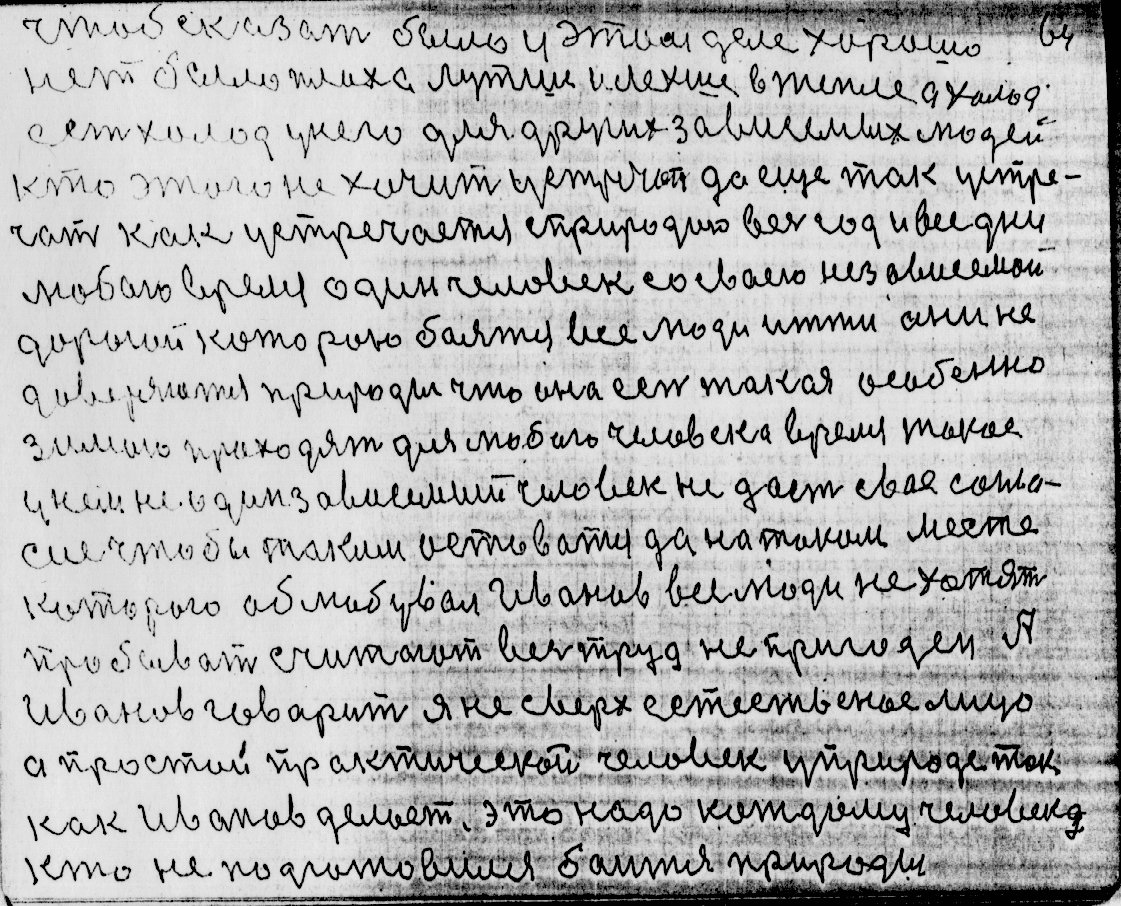 чтоб сказат было у этом деле хорошо 64
нет было плоха лутши илехше втепле а холод
сет холод унего для других зависемых людей
кто этого не хочит устречат да еще так устре-
чат как устречается сприродою вес год ивсе дни
любого время один человек со сваею независемой
дорогой которою баятся все люди итти они не
доверяются природы что она сет такая особенно
зимою праходят для любого человека время такое
укем не один зависемий человек не дает свае согла-
сие чтобы таким оставатся да натаком месте
которого облюбувал Иванов все люди не хотят
пробыват считают вес труд не пригоден А
Иванов гаварит я не сверх естественое лицо
а простой практической человек уприроде так
как Иванов делает. это надо каждому человеку
кто не подготовился баится природы